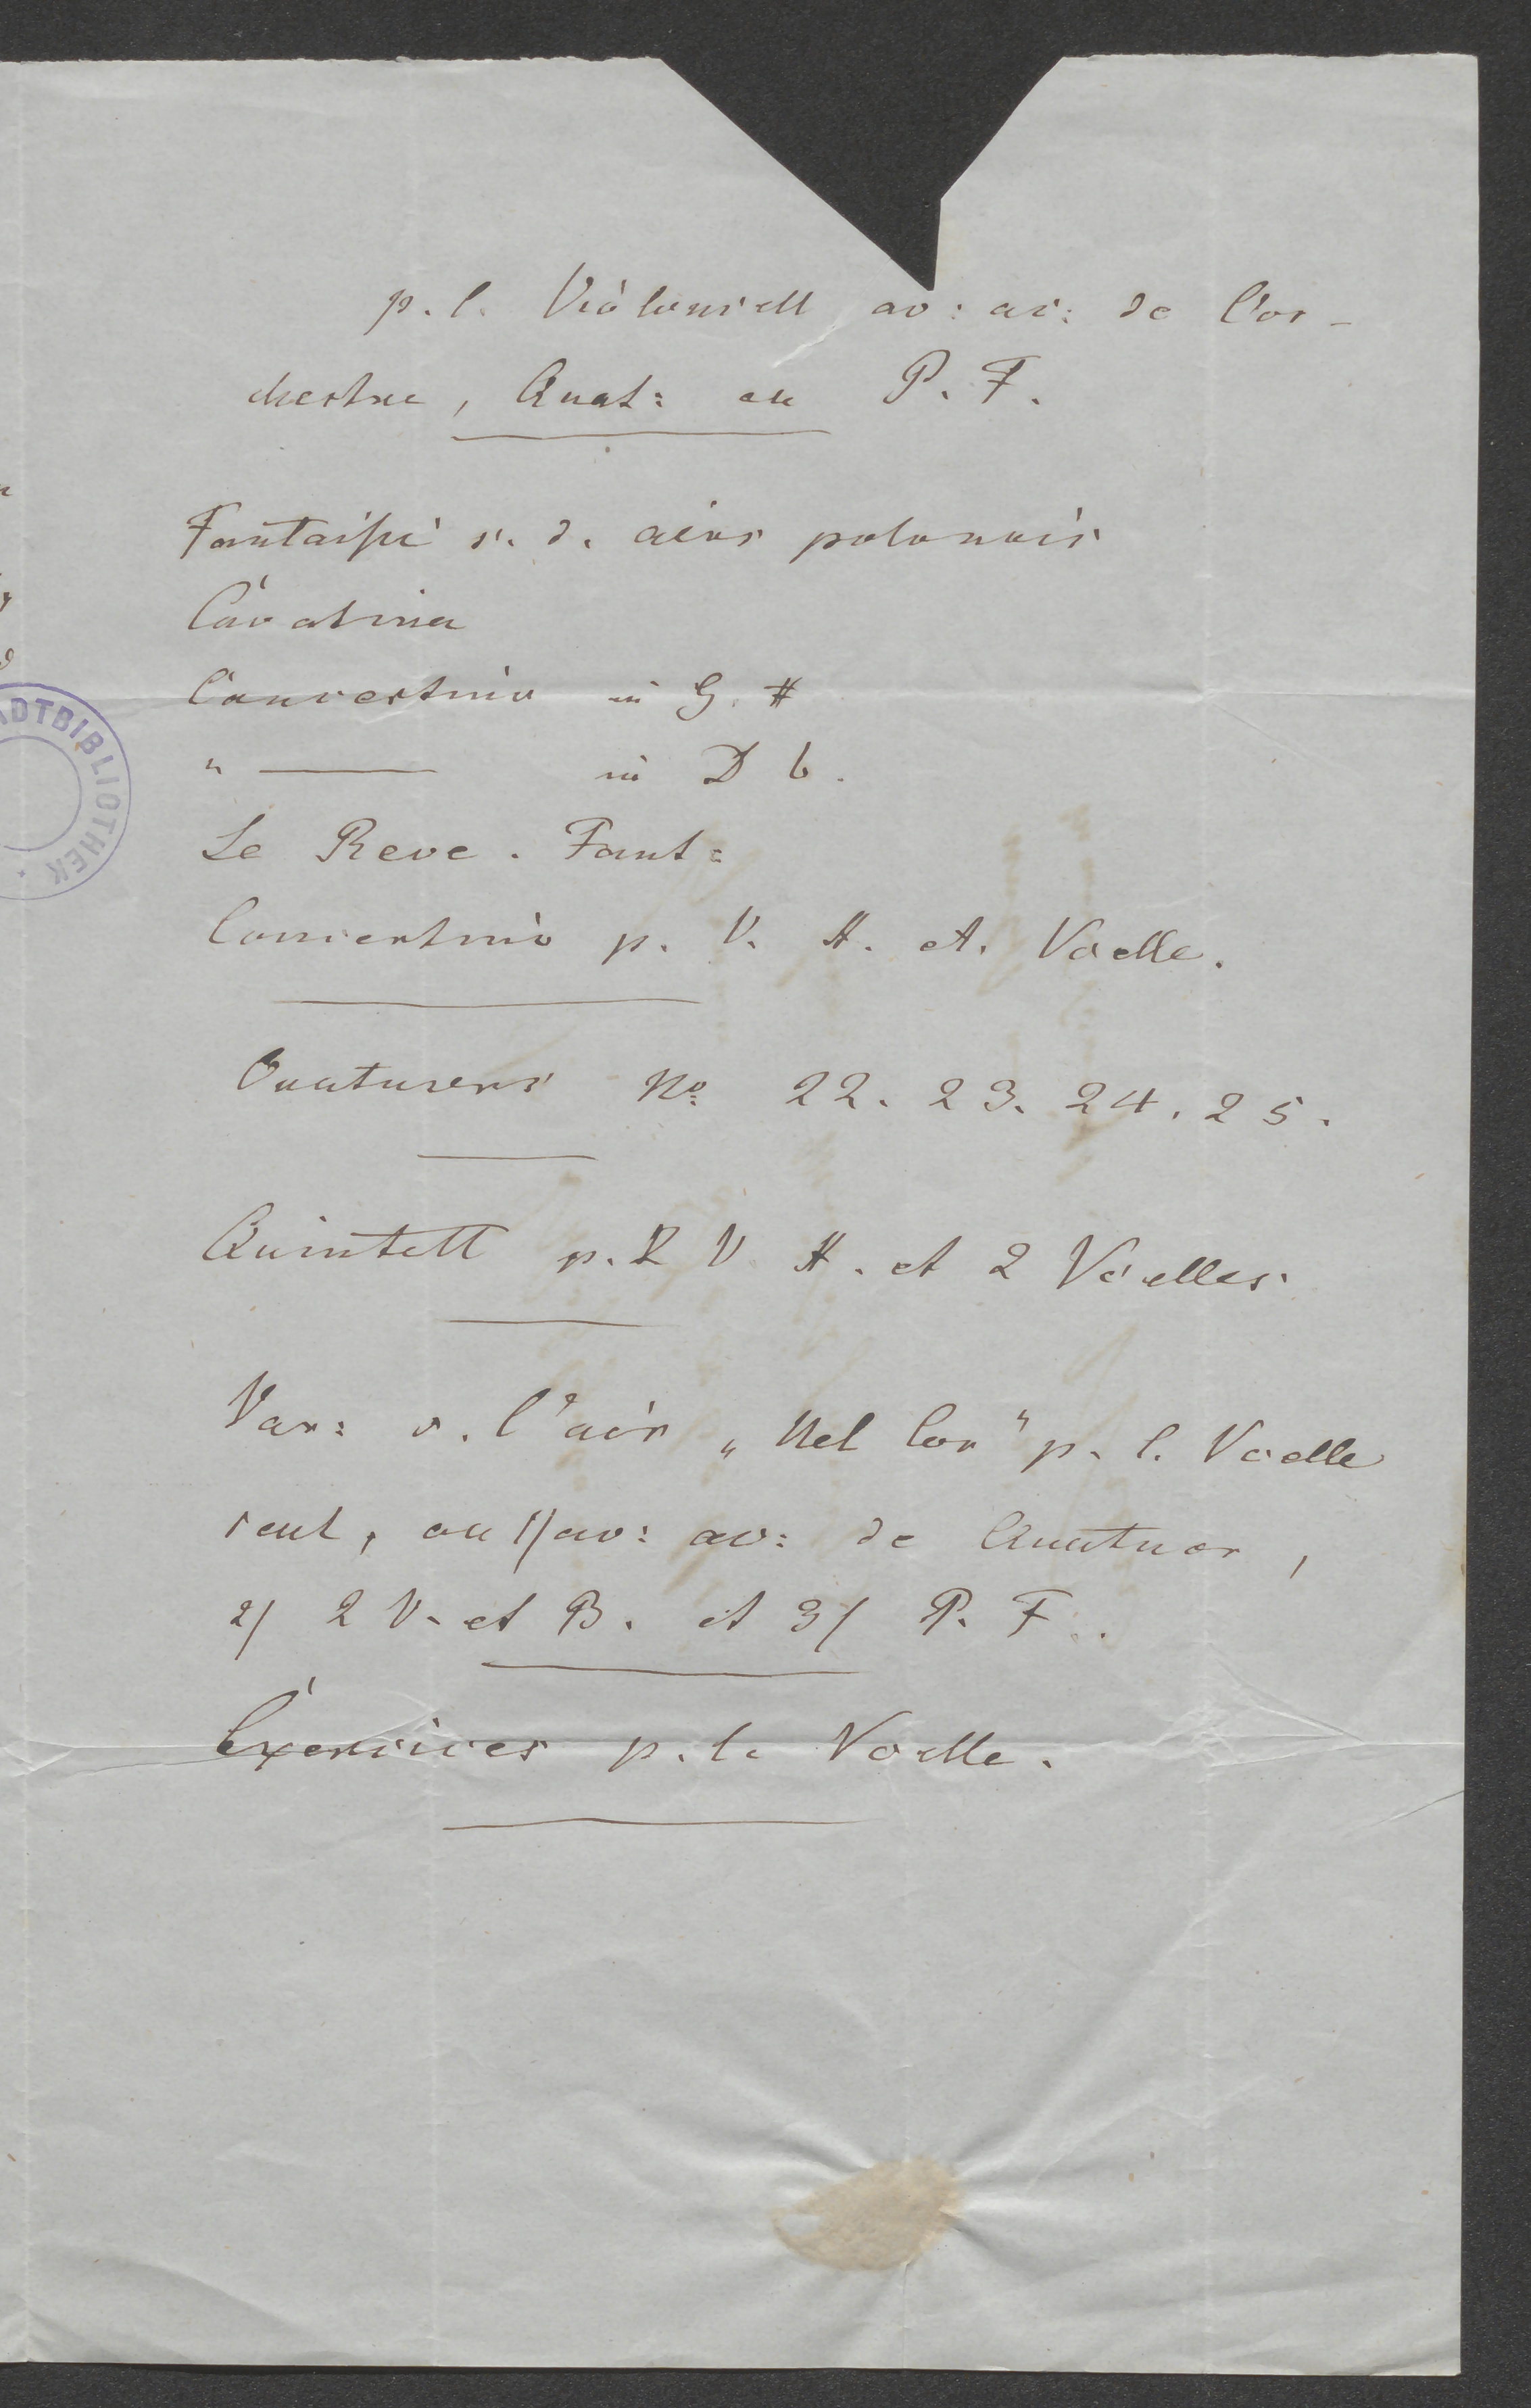 p. l. Violoncell av: ac: de l'or-
chestre, Quat: ou P. F.
Fantaisie s. d. airs polonais
Cavatina
Concertino in G. #
" — in D b.
Le Reve. Fant:
Concertino p. V. A. et. Vcelle.
Quatuors No: 22. 23. 24. 25.
Quintett p. 2 V. A. et 2 Vcelles
Var: s. l'air „Nel Cor" p. l. Vcelle
seul, ou 1/ av: ac: de Quatuor,
2/ 2 V. et B. et 3/ P. F.
Exercices p. l. Vcelle.
STADTBIBLIOTHEK